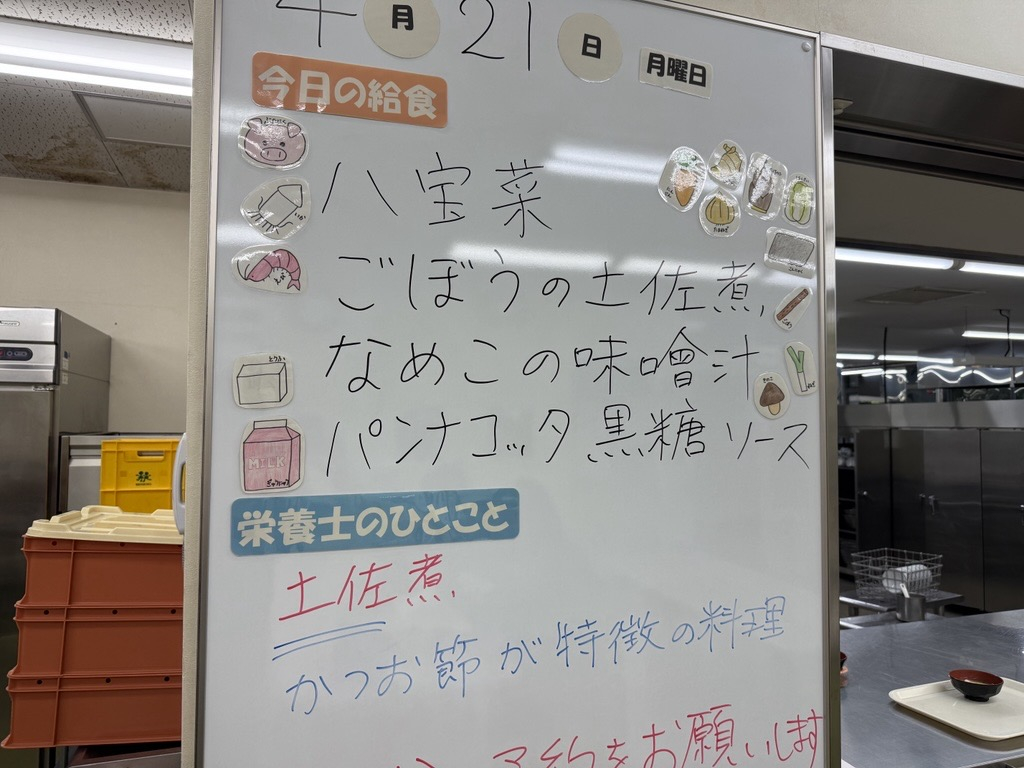 4月21日 月曜日
今日の給食
八宝菜
ごぼうの土佐煮
なめこの味噌汁
パンナコッタ黒糖ソース
とうふ
MILK
ぎゅうにゅう
いか
栄養士のひとこと
土佐煮
かつお節が特徴の料理
予約をお願いします